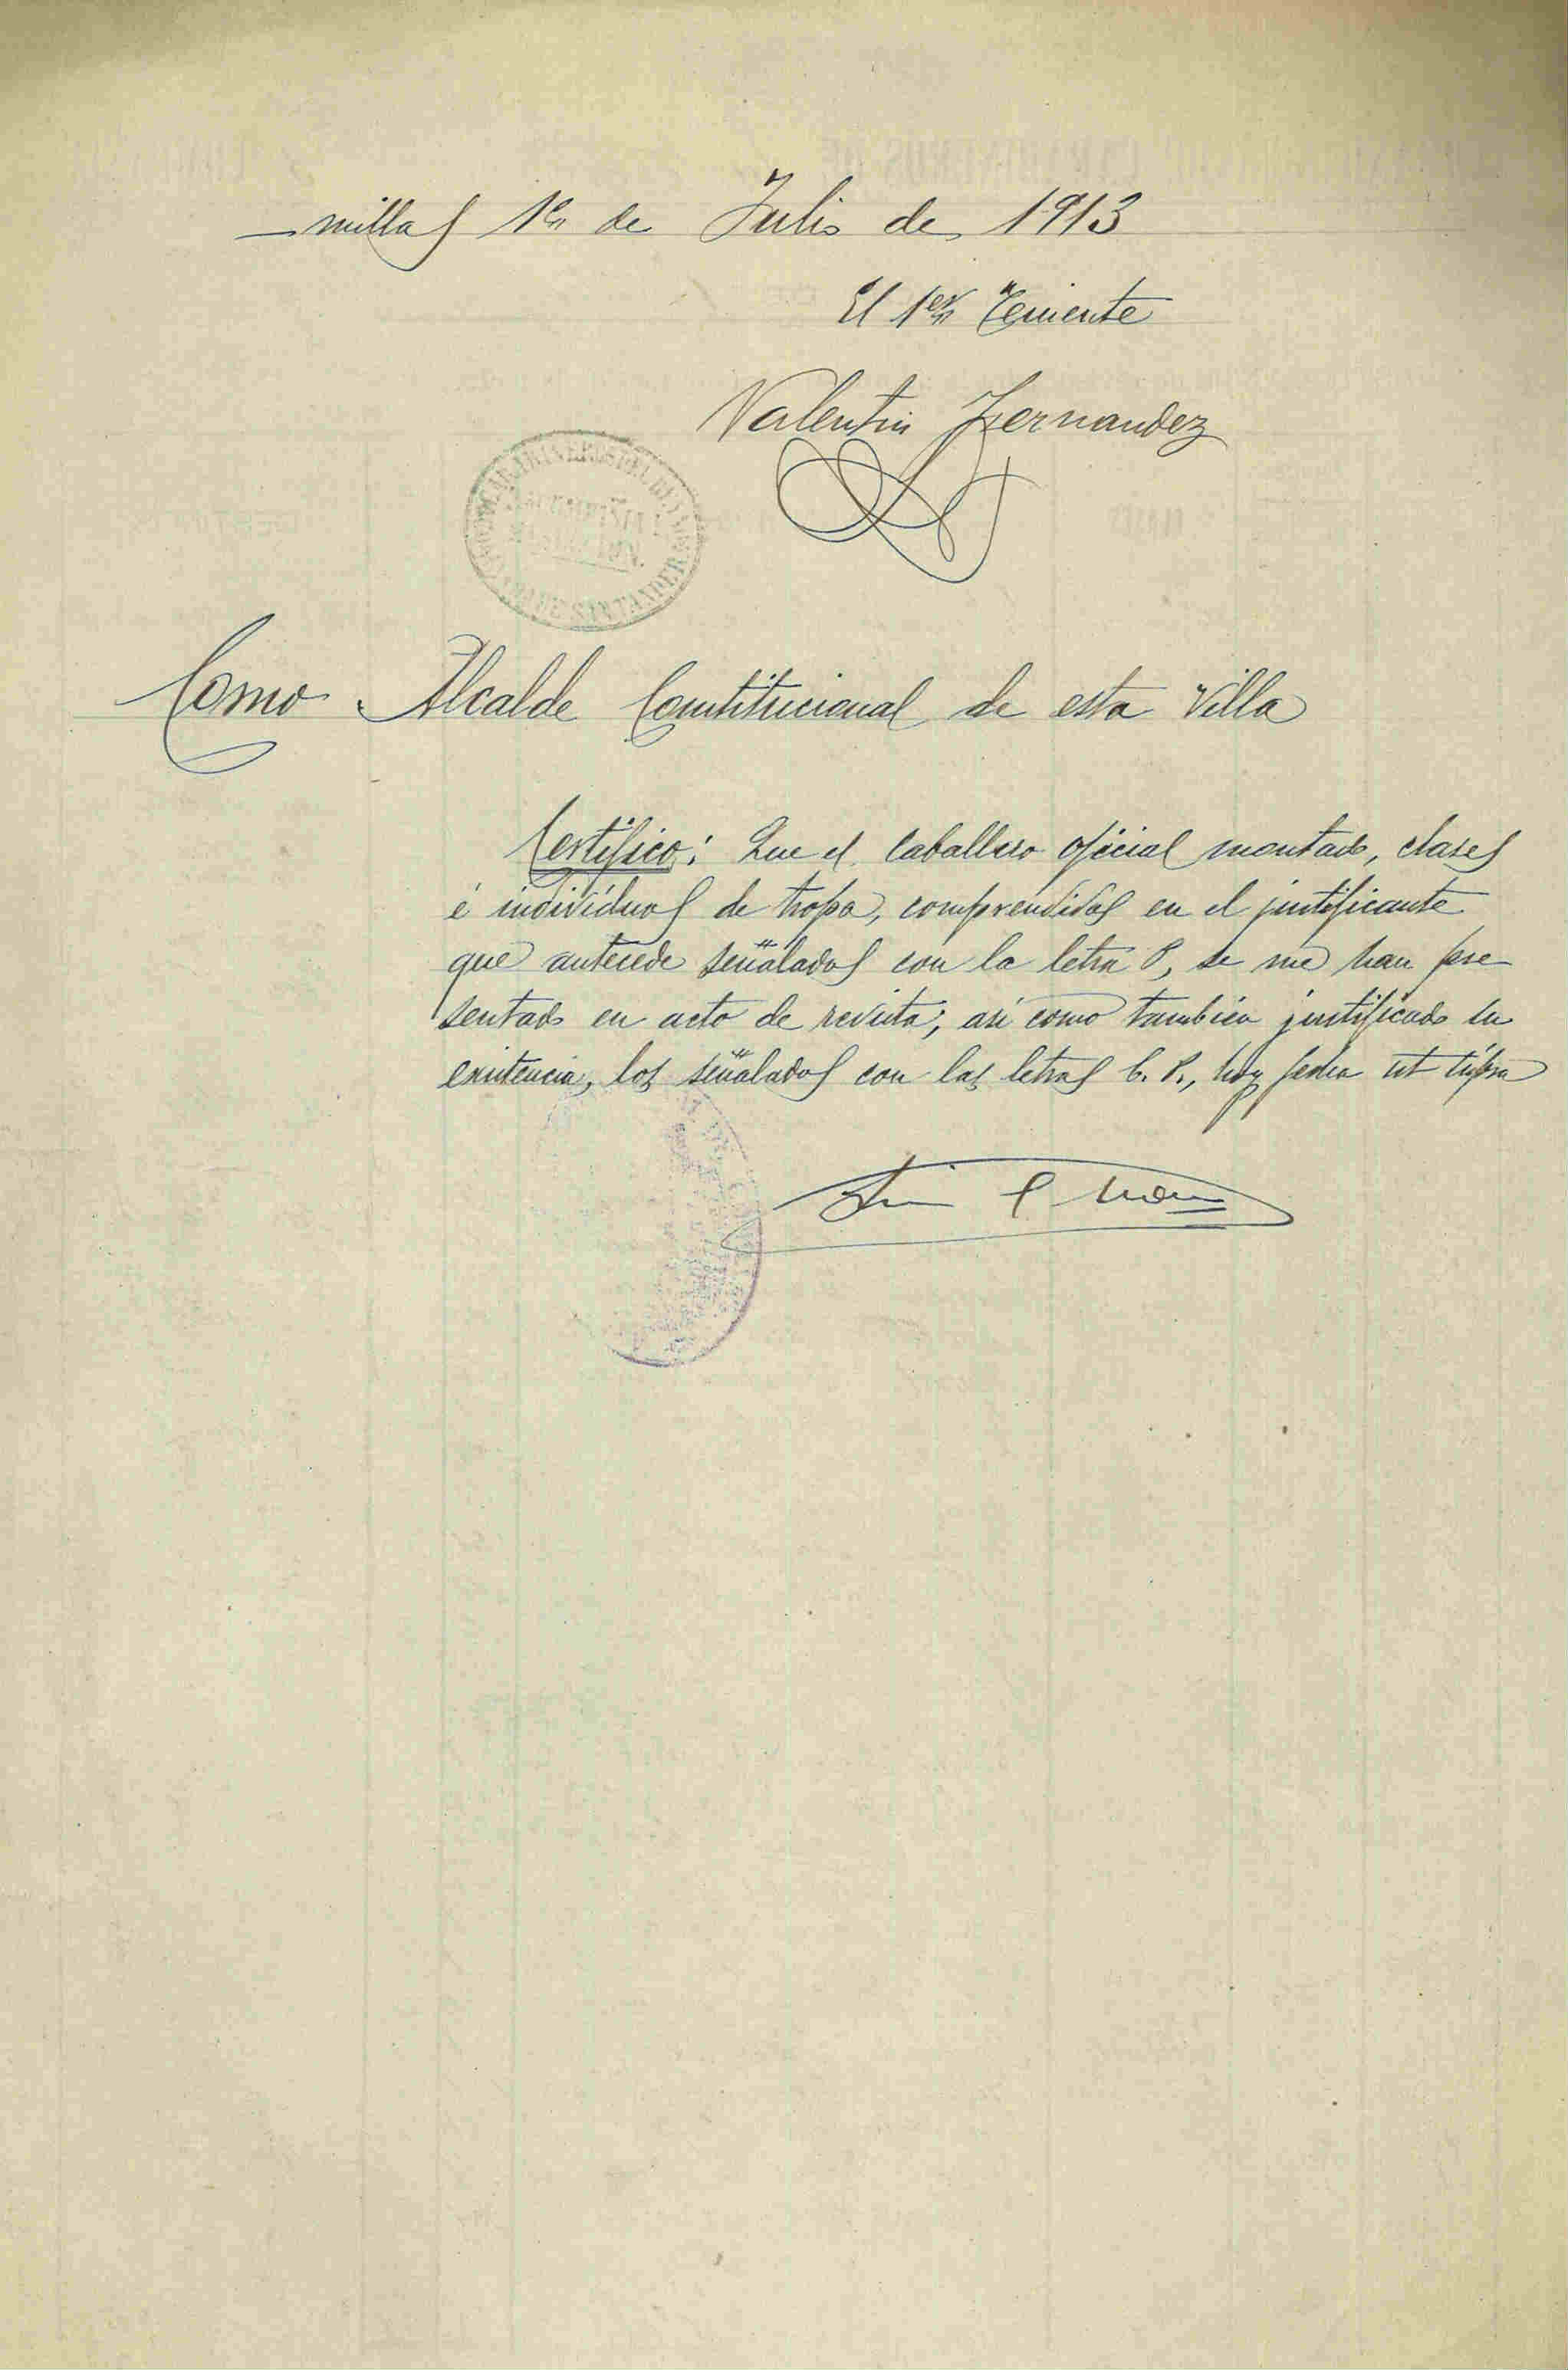 millas 1º de Julio de 1913
El 1er Teniente
Valentin Fernandez
SANTANDER
Como Alcalde Constitucional de esta Villa
Certifico: Que el Caballero oficial montado, clases
é individuos de tropa, comprendidos en el justificante
que antecede señalados con la letra P, se me han pre
sentado en acto de revista; asi como tambien justificado su
existencia, los señalados con las letras C. P., hoy fecha ut supra